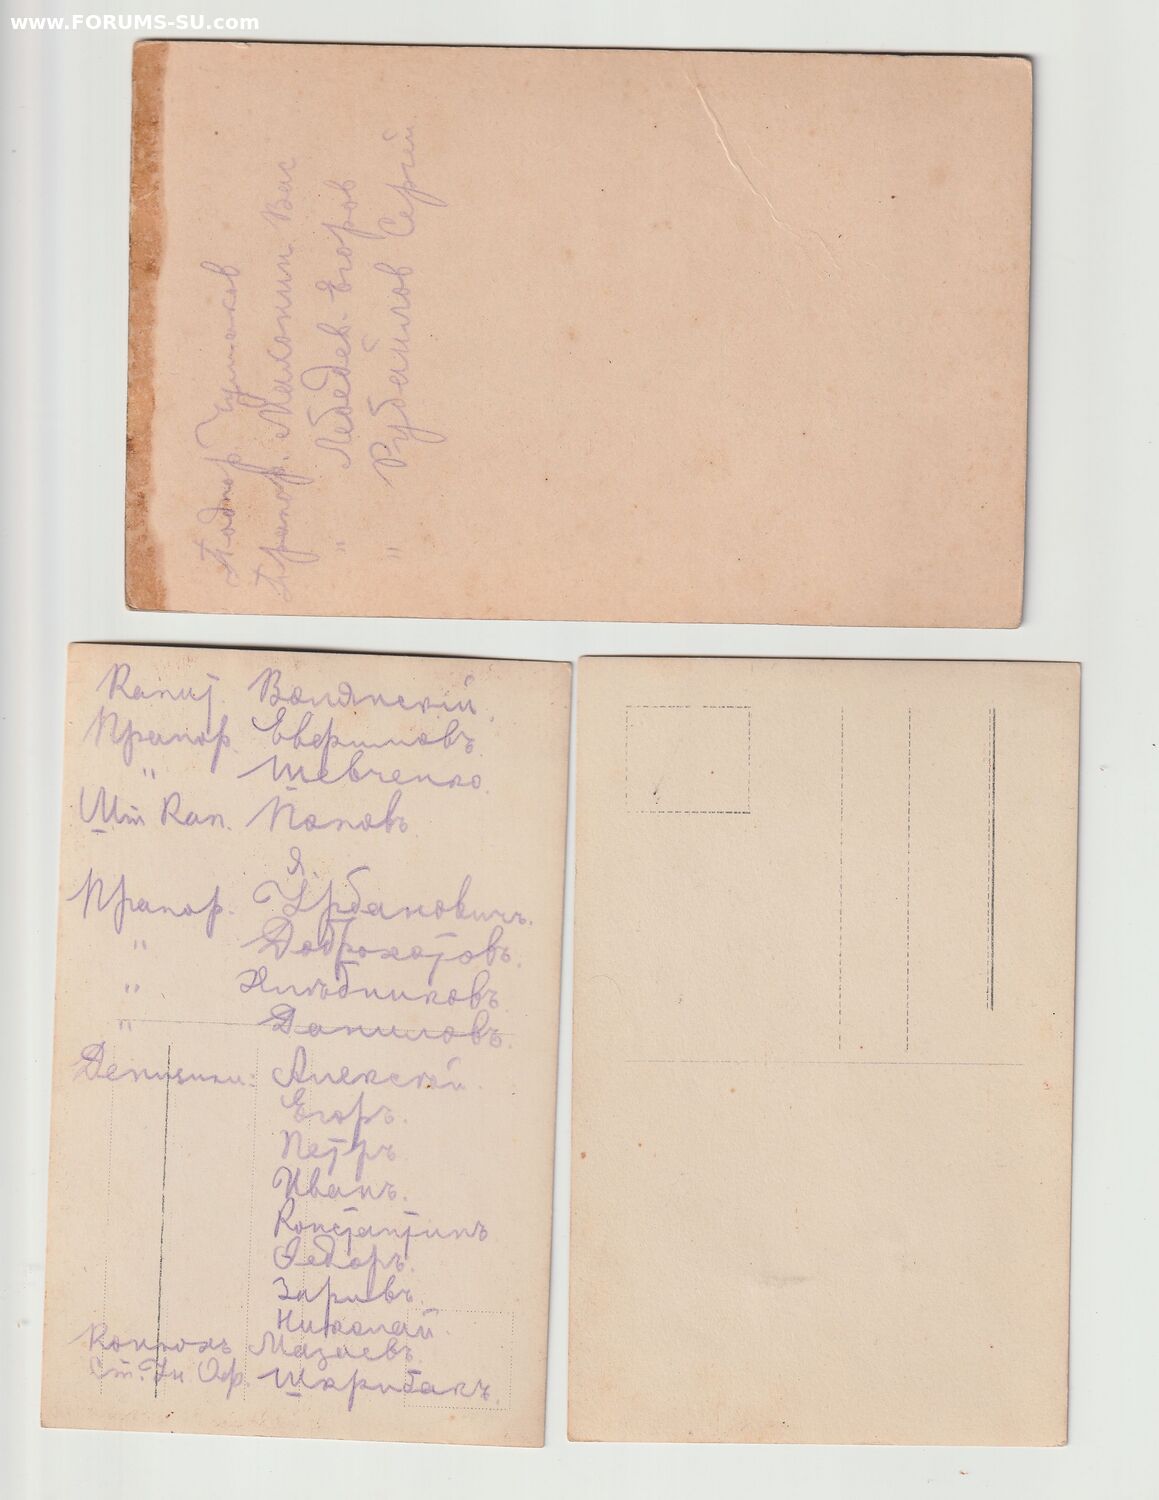 www.FORUMS-SU.com
Подпор. Чумаков
Прапор. Малонин Вас
" Лебедев Егоров
" Рубайлов Сергей
Капит. Волянский.
Прапор. Евфимовъ
" Шевченко.
Шт Кап. Поповъ
Я.
Прапор. Урбановичъ.
" Доброхотовъ.
" Хлѣбниковъ
" Даниловъ.
Денщики: Алексѣй.
Егоръ.
Петръ
Иванъ.
Константинъ
Федоръ.
Николай.
Конюхъ Мазаевъ
Ст. Ун Оф. Шкрибакъ.